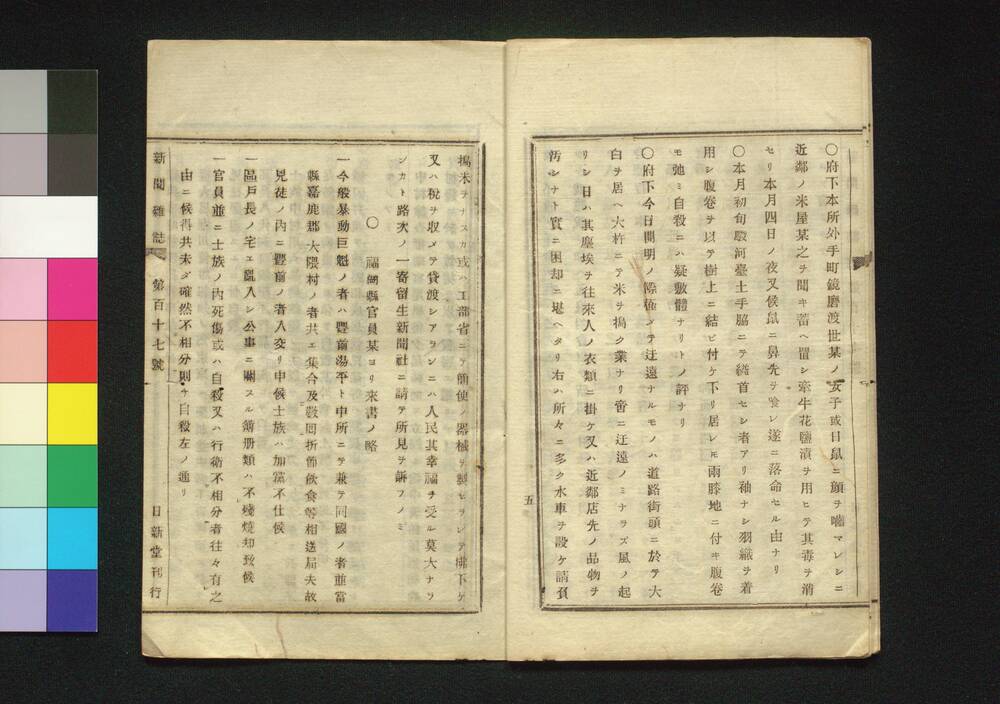 〇府下本所外手町鏡磨渡世某ノ女子或日鼠ニ頭ヲ嚙マレシニ
近鄰ノ米屋某之ヲ聞キ蓄ヘ置シ牽牛花鹽漬ヲ用ヒテ其毒ヲ消
セリ本月四日ノ夜又候鼠ニ鼻先ヲ喰レ遂ニ落命セル由ナリ
〇本月初旬駿河臺土手脇ニテ縊首セシ者アリ袖ナシ羽織ヲ着
用シ腹卷ヲ以テ樹上ニ結ビ付ケ下リ居レ𪜈兩膝地ニ付キ腹卷
モ弛ミ自殺ニハ疑敷體ナリトノ評ナリ
〇府下今日開明ノ際極メテ迂遠ナルモノハ道路街頭ニ於テ大
白ヲ居ヘ大杵ニテ米ヲ搗ク業ナリ啻ニ迂遠ノミナラズ風ノ起
リシ日ハ其塵埃ヲ往來人ノ衣類ニ掛ケ又ハ近鄰店先ノ品物ヲ
汚シナト實ニ困却ニ堪ヘタリ右ハ所々ニ多ク水車ヲ設ケ請負
五
搗米ヲナスカ或ハ工部省ニテ簡便ノ器械ヲ製セラレテ拂下ケ
又ハ稅ヲ收メテ貸渡シアランニハ人民其幸福ヲ受ル莫大ナラ
ンカト路次ノ一寄留生新聞社ニ請テ所見ヲ餠フノミ
〇 福岡縣官員某ヨリ來書ノ略
一今般暴動巨魁ノ者ハ豐前湯平ト申所ニテ兼テ同國ノ者並當
縣嘉鹿郡大隈村ノ者共エ集合及數囘折節飮食等相送居夫故
兇徒ノ內ニ豐前ノ者入交リ申候士族ハ加黨不仕候
一區戶長ノ宅エ亂入シ公事ニ關スル簿册類ハ不殘燒却致候
一官員並ニ士族ノ內死傷或ハ自殺又ハ行衛不相分者往々有之
由ニ候得共未ダ確然不相分則チ自殺左ノ通リ
新聞雜誌 第百十七號 日新堂刊行